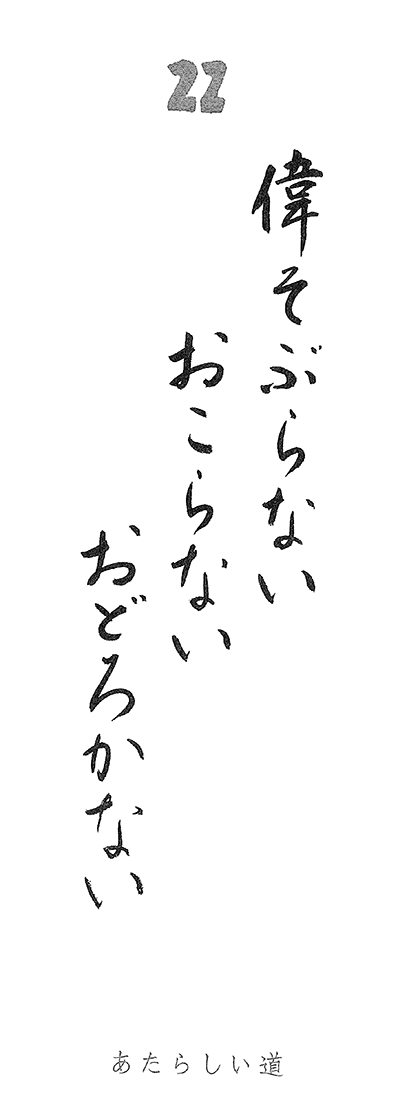 22
偉そぶらない
おこらない
おどろかない
あたらしい道